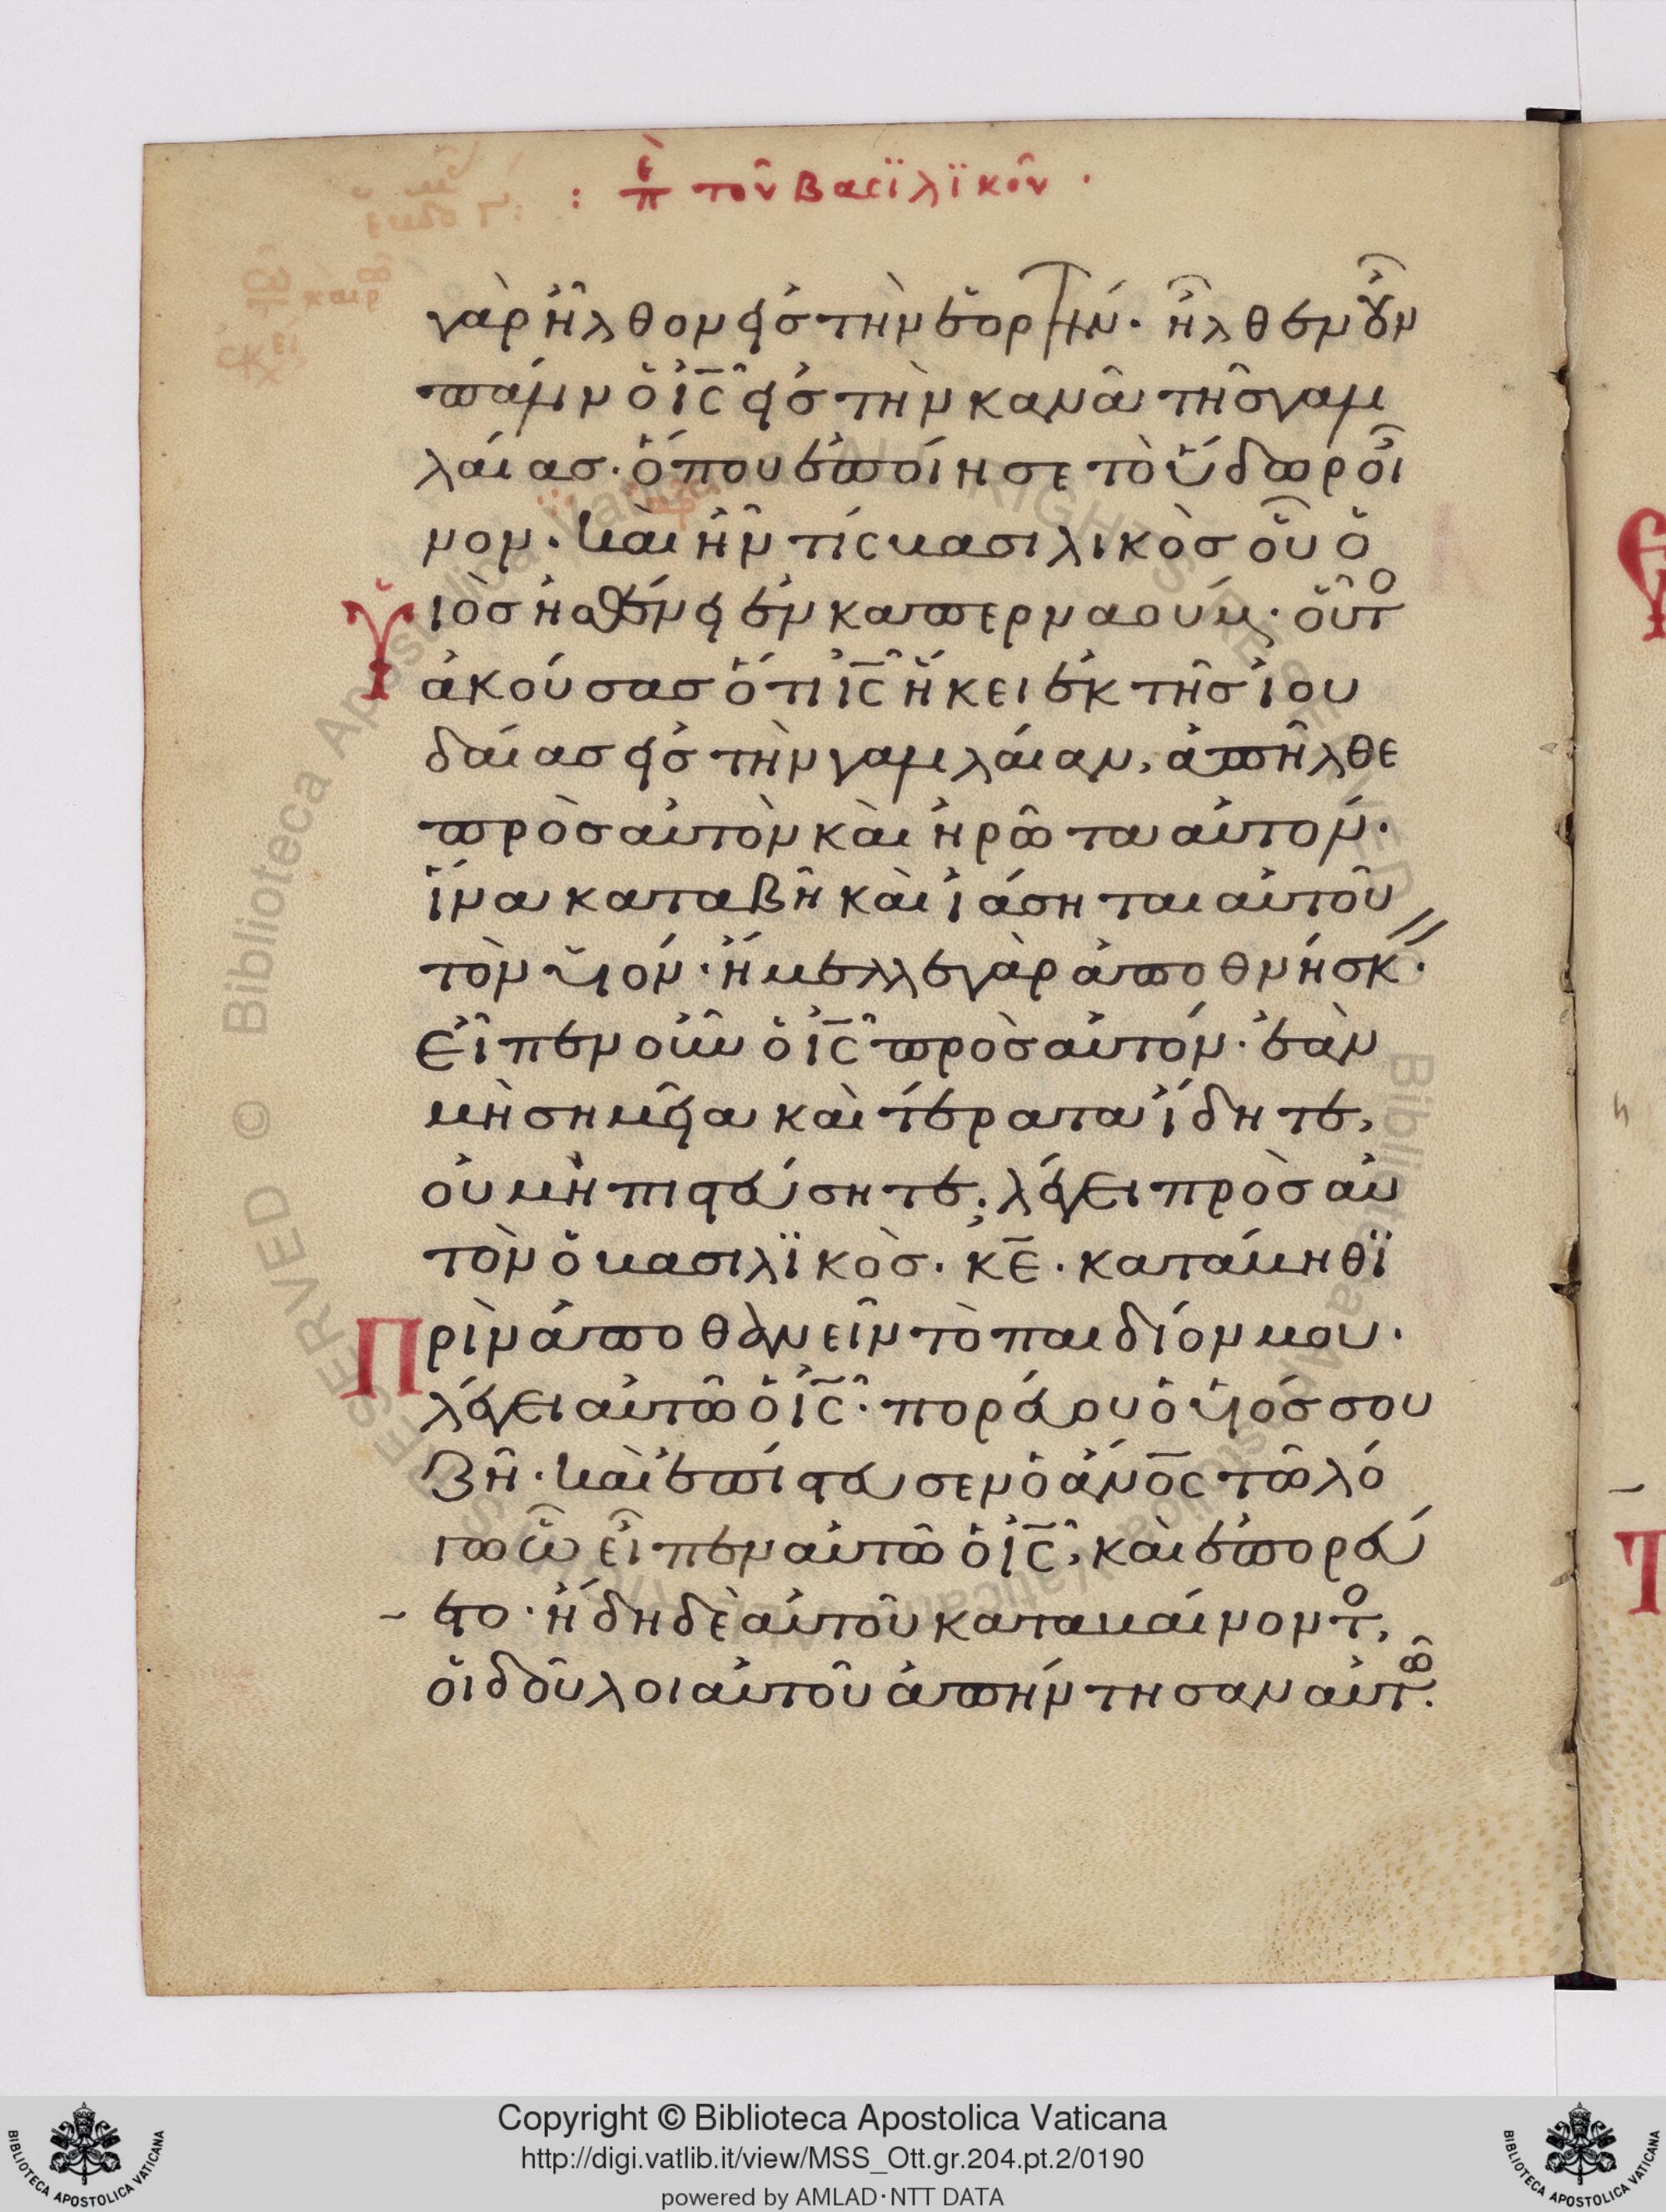 : ἐπ τοῦ βασϊλϊκοῦ ·
γὰρ ἦλθον εἰσ τὴν ἑορτήν · ἦλθεν οὖν
πάλιν ὁ ἰ̅ς̅ εἰσ τὴν κανᾶ τῆσ γαλι
λαίασ · ὅπου ἐποίησε τὸ ὕδωρ οἶ
νον · καὶ ἦν τίς βασιλικὸσ οὗ ὁ
Ὑιὸσ ἠσθένει ἐν καπερναούμ · οὗτο
ἀκούσασ ὅτι ἰ̅ς̅ ἥκει ἐκ τῆσ ἰου
δαίασ εἰσ τὴν γαλιλαίαν, ἀπῆλθε
πρὸσ αὐτὸν καὶ ἠρῶτα αὐτόν ·
ἵνα καταβῆ καὶ ἰάσηται αὐτοῦ
τὸν ὑιόν · ἤμελλε γὰρ ἀποθνήσκ ·
Εἶπεν οὖν ὁ ἰ̅ς̅ πρὸσ αὐτόν · ἐὰν
μὴ σημεῖα καὶ τέρατα ἴδητε,
οὐ μὴ πιστεύσητε · λέγει πρὸσ αὐ
τὸν ὁ βασιλϊκὸσ · κ̅ε̅ · κατάβηθϊ
Πρὶν ἀποθανεῖν τὸ παιδίον μου ·
λέγει αὐτῶ ὁ ἰ̅ς̅ · πορεύου ὁ ὑιόσ σου
ζῆ · καὶ ἐπίστευσεν ὁ ἀ̅ν̅ο̅ς̅ τῶ λό
γω ὧ εἶπεν αὐτῶ ὁ ἰ̅ς̅, καὶ ἐπορεύ
ετο · ἤδη δὲ αὐτοῦ καταβαίνοντο,
ὁι δοῦλοι αὐτοῦ ἀπήντησαν αὐτῶ.
© Biblioteca Apostolica Vaticana ALL RIGHTS RESERVED
Copyright © Biblioteca Apostolica Vaticana
http://digi.vatlib.it/view/MSS_Ott.gr.204.pt.2/0190
powered by AMLAD·NTT DATA
BIBLIOTECA APOSTOLICA VATICANA
BIBLIOTECA APOSTOLICA VATICANA